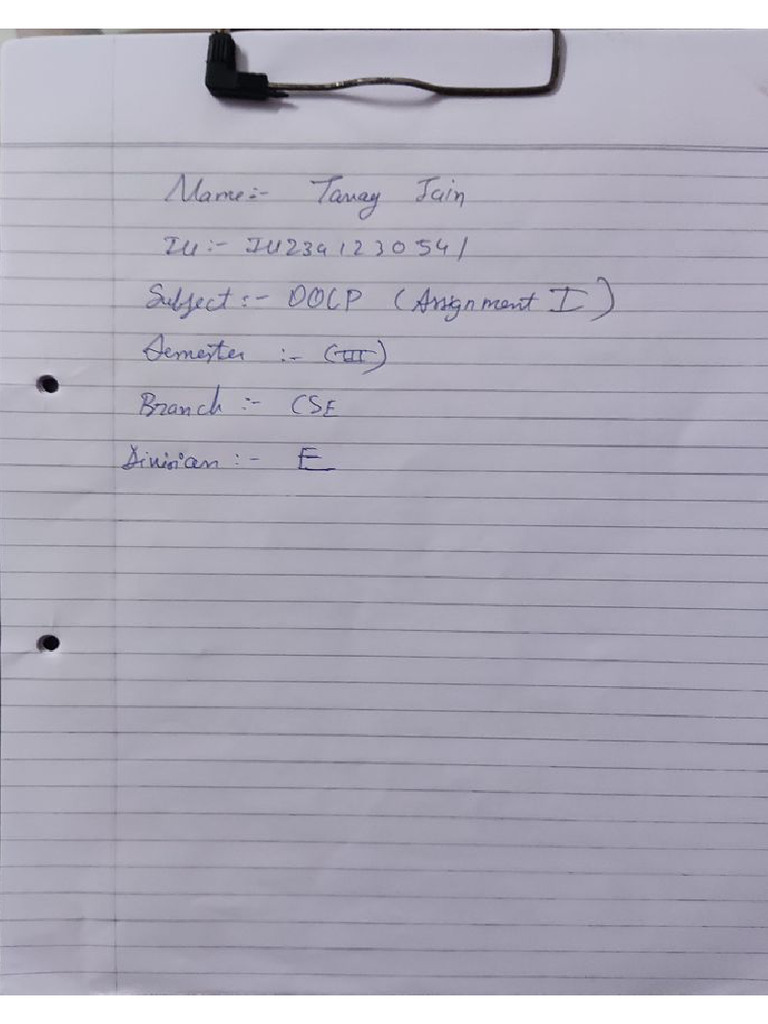 Name:- Tanay Jain
IU:- IU2341230541
Subject:- DOCP (Assignment I)
Semester :- (III)
Branch :- CSE
Division :- E